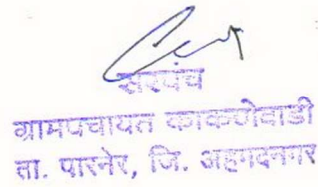 सरपंच
ग्रामपंचायत काकणेवाडी
ता. पारनेर, जि. अहमदनगर